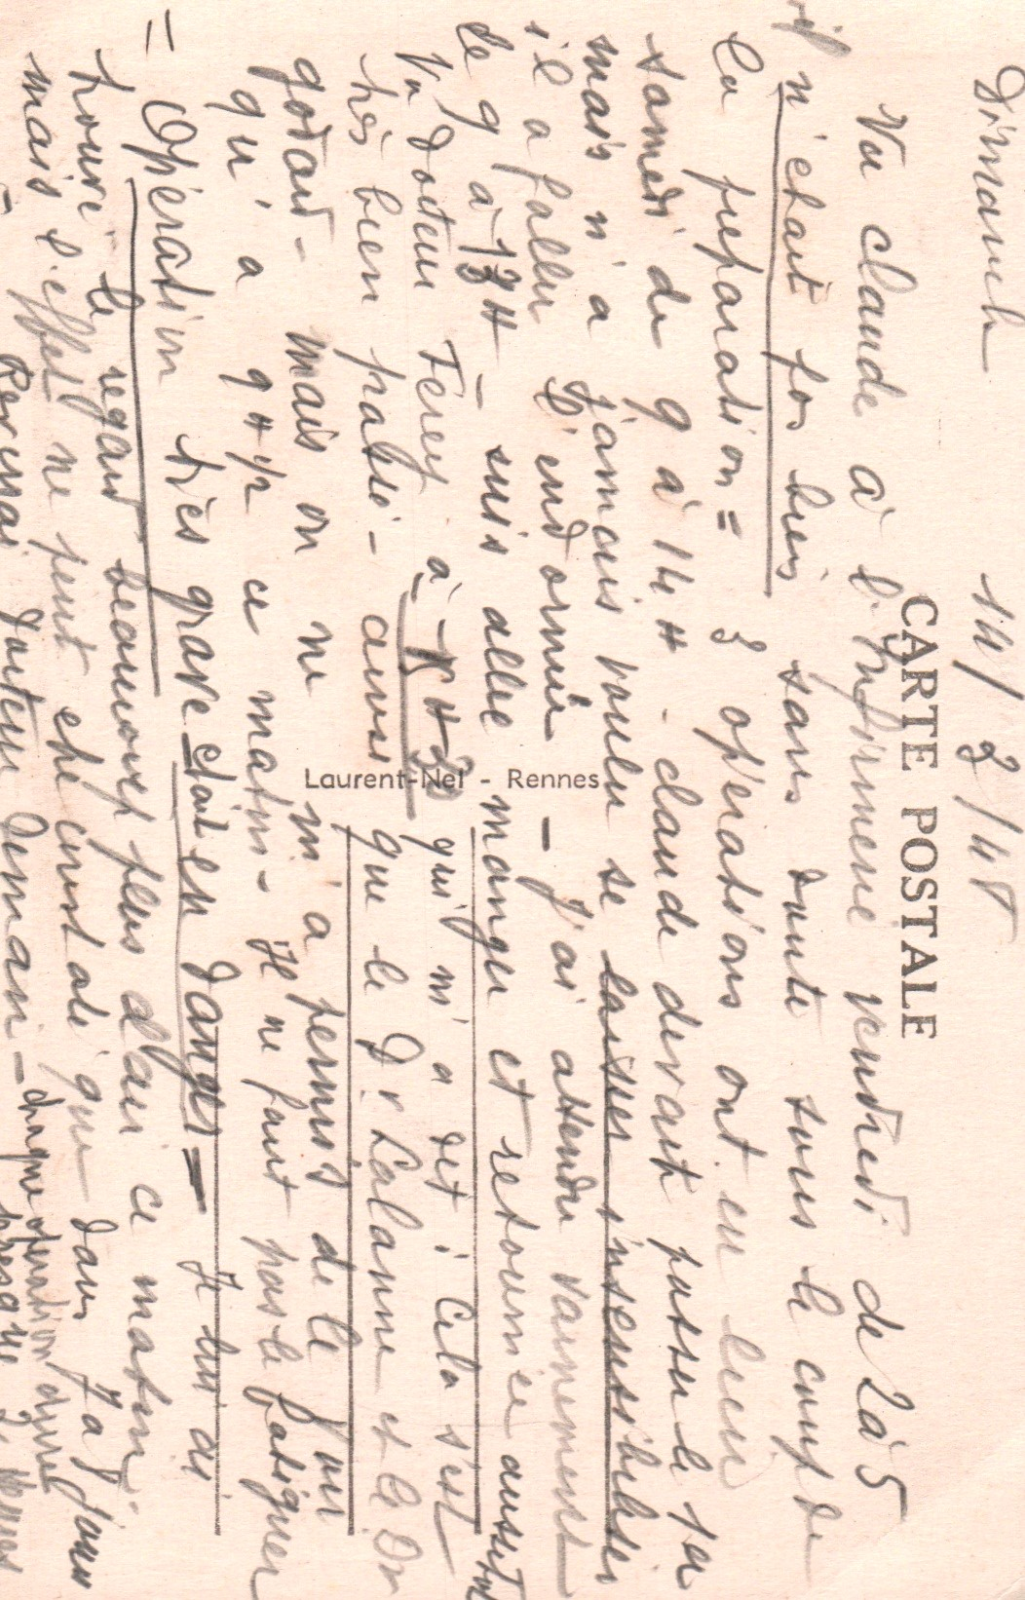 Dimanche 14/3/48
CARTE POSTALE
Vu claude à l'infirmerie vendredi de 2 à 5
il n'était pas bien sans doute sous le coup de
la préparation = 3 opérations ont eu lieu
samedi de 9 à 14 H - claude devait passer le 1er
mais n'a jamais voulu se laisser insensibiliser
il a fallu l'endormir - J'ai attendu vainement
de 9 à 13 H - suis allée manger et retournée aussitôt
Vu docteur Feret à qui m'a dit : Cela s'est
très bien passé - ainsi que le Dr Lalanne et le Dr
godard - mais on ne m'a permis de le voir
qu'à 9 H 1/2 ce matin - Il ne faut pas le fatiguer
= Opération très grave était en danger = Je lui ai
trouvé le regard beaucoup plus clair ce matin
mais l'effet ne peut être constaté que dans 8 jours
Reverrai docteur demain - chaque opération dure
presque 2 heures
Laurent-Nel - Rennes